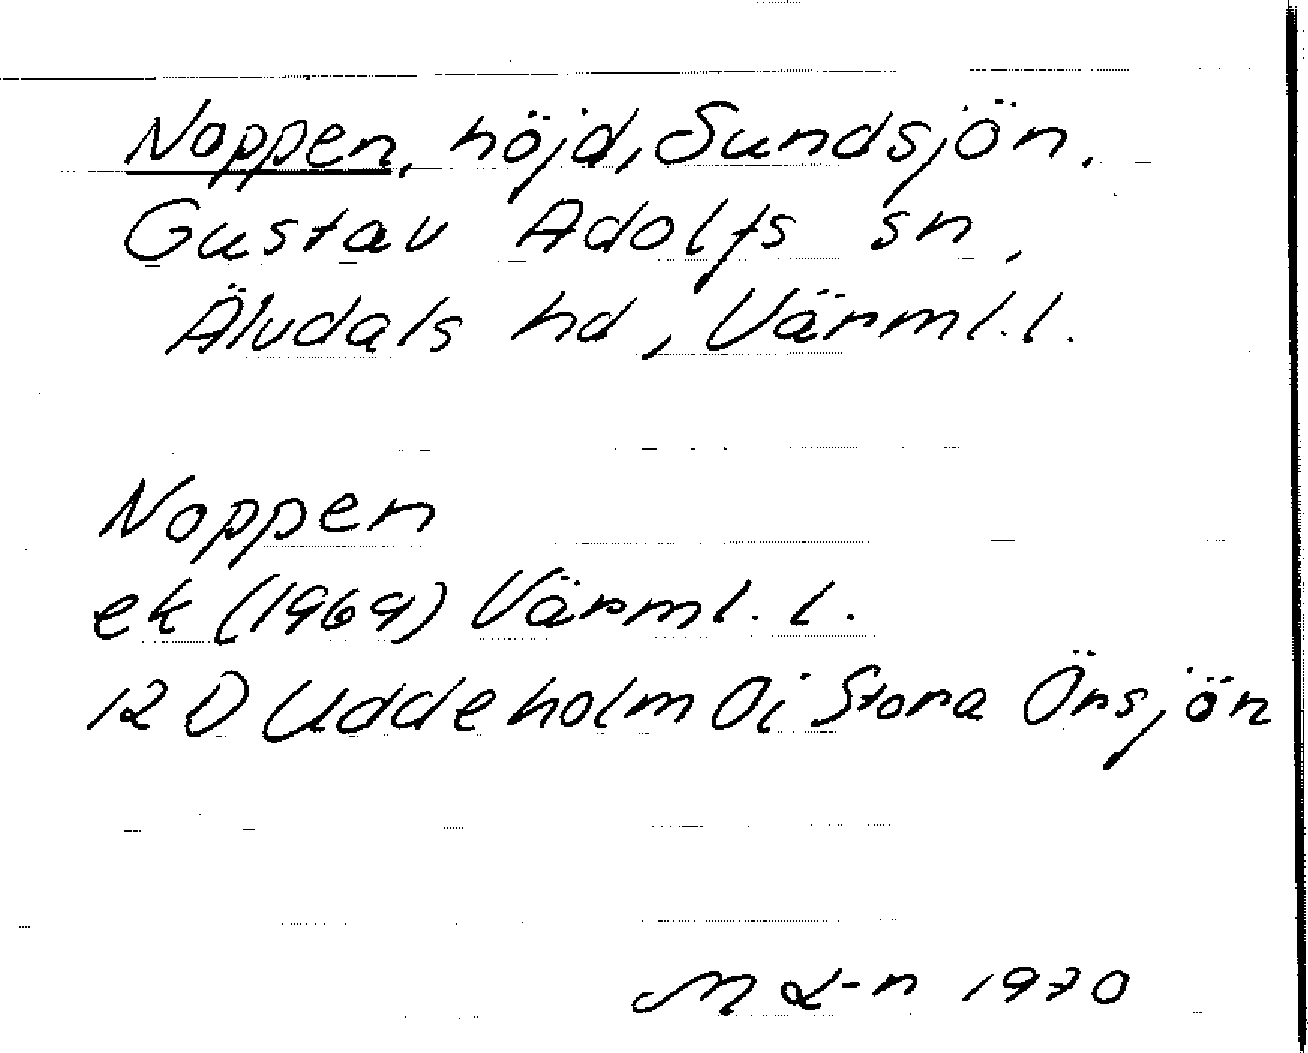 Noppen, höjd, Sundsjön.
Gustav Adolfs sn,
Älvdals hd, Värml.l.
Noppen
ek (1969) Värml. l.
12 D Uddeholm 0i Stora Örsjön
M L-n 1970